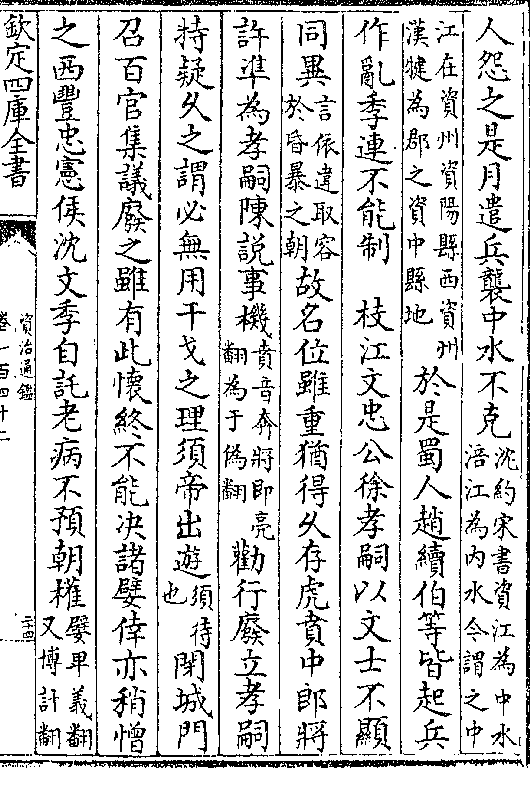 人怨之是月遣兵襲中水不克沈約宋書資江為中水涪江為内水今謂之中
江在資州資陽縣西資州漢犍為郡之資中縣地於是蜀人趙續伯等皆起兵
作亂季連不能制　枝江文忠公徐孝嗣以文士不顯
同異言依違取容於昏暴之朝故名位雖重猶得久存虎賁中郎將
許準為孝嗣陳說事機賁音奔將即亮翻為于偽翻勸行廢立孝嗣
持疑久之謂必無用干戈之理須帝出遊須待也閉城門
召百官集議廢之雖有此懷終不能决諸嬖倖亦稍憎
之西豐忠憲侯沈文季自託老病不預朝權嬖卑義翻又博計翻
欽定四庫全書
資治通鑑
卷一百四十二
二十四